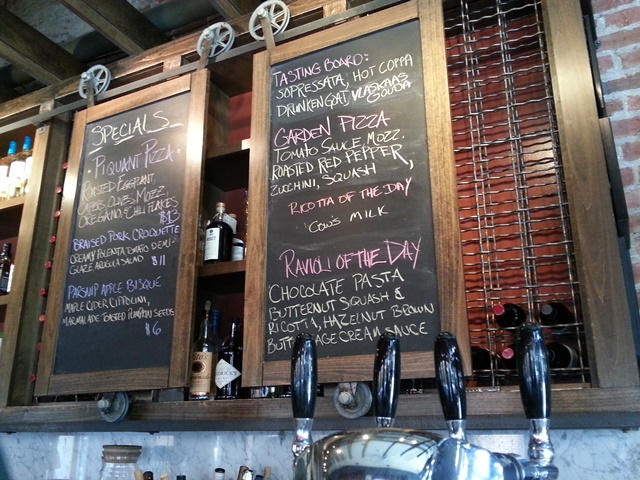 SPECIALS
PIQUANT PIZZA
ROASTED EGGPLANT,
CAPERS, OLIVES, MOZZ,
OREGANO, CHILI FLAKES
$13
BRAISED PORK CROQUETTE
CREAMY POLENTA, TOMATO DEMI-
GLAZE ARUGULA SALAD $11
PARSNIP APPLE BISQUE
MAPLE CIDER CIPPOLINI,
MARMALADE TOASTED PUMPKIN SEEDS
$6
TASTING BOARD:
SOPRESSATA, HOT COPPA
DRUNKEN GOAT, VLASKAAS
GOUDA
GARDEN PIZZA
TOMATO SAUCE, MOZZ.
ROASTED RED PEPPER,
ZUCCHINI, SQUASH
RICOTTA OF THE DAY
COW'S MILK
RAVIOLI OF THE DAY
CHOCOLATE PASTA
BUTTERNUT SQUASH &
RICOTTA, HAZELNUT BROWN
BUTT AGE CREAM SAUCE